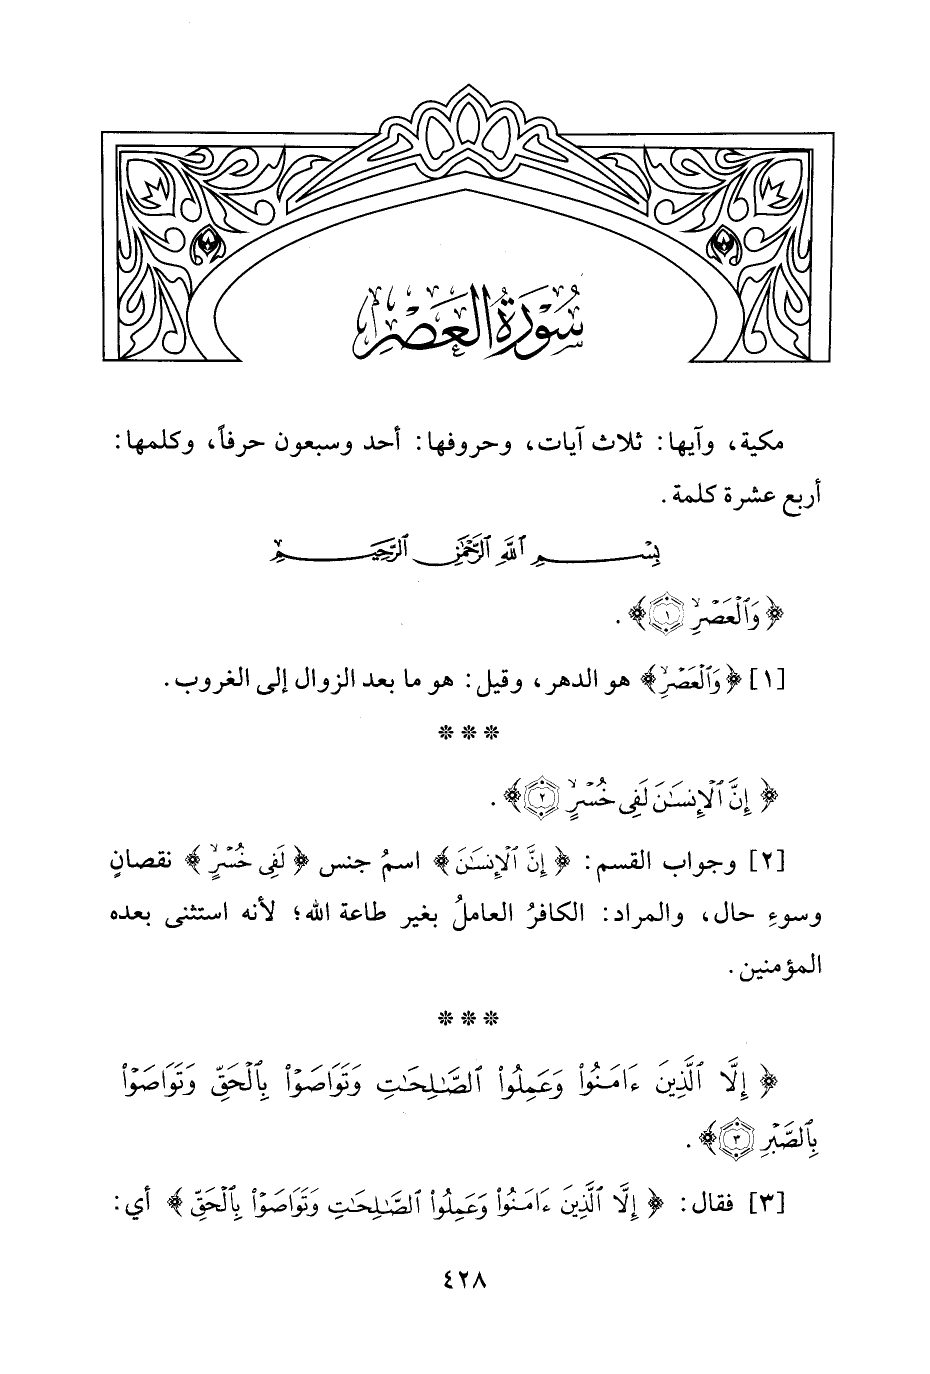 سُورَةُ العَصْرِ
مكية، وآيها: ثلاث آيات، وحروفها: أحد وسبعون حرفاً، وكلمها:
أربع عشرة كلمة.
بِسْمِ ٱللَّهِ ٱلرَّحْمَٰنِ ٱلرَّحِيمِ
﴿وَٱلْعَصْرِ ۙ ١﴾.
[١] ﴿وَٱلْعَصْرِ ۙ﴾ هو الدهر، وقيل: هو ما بعد الزوال إلى الغروب.
* * *
﴿إِنَّ ٱلْإِنسَٰنَ لَفِى خُسْرٍ ۙ ٢﴾.
[٢] وجواب القسم: ﴿إِنَّ ٱلْإِنسَٰنَ﴾ اسمُ جنس ﴿لَفِى خُسْرٍ ۙ﴾ نقصانٍ
وسوءِ حال، والمراد: الكافرُ العاملُ بغير طاعة الله؛ لأنه استثنى بعده
المؤمنين.
* * *
﴿إِلَّا ٱلَّذِينَ ءَامَنُوا۟ وَعَمِلُوا۟ ٱلصَّٰلِحَٰتِ وَتَوَاصَوْا۟ بِٱلْحَقِّ وَتَوَاصَوْا۟
بِٱلصَّبْرِ ٣﴾.
[٣] فقال: ﴿إِلَّا ٱلَّذِينَ ءَامَنُوا۟ وَعَمِلُوا۟ ٱلصَّٰلِحَٰتِ وَتَوَاصَوْا۟ بِٱلْحَقِّ﴾ أي:
٤٢٨